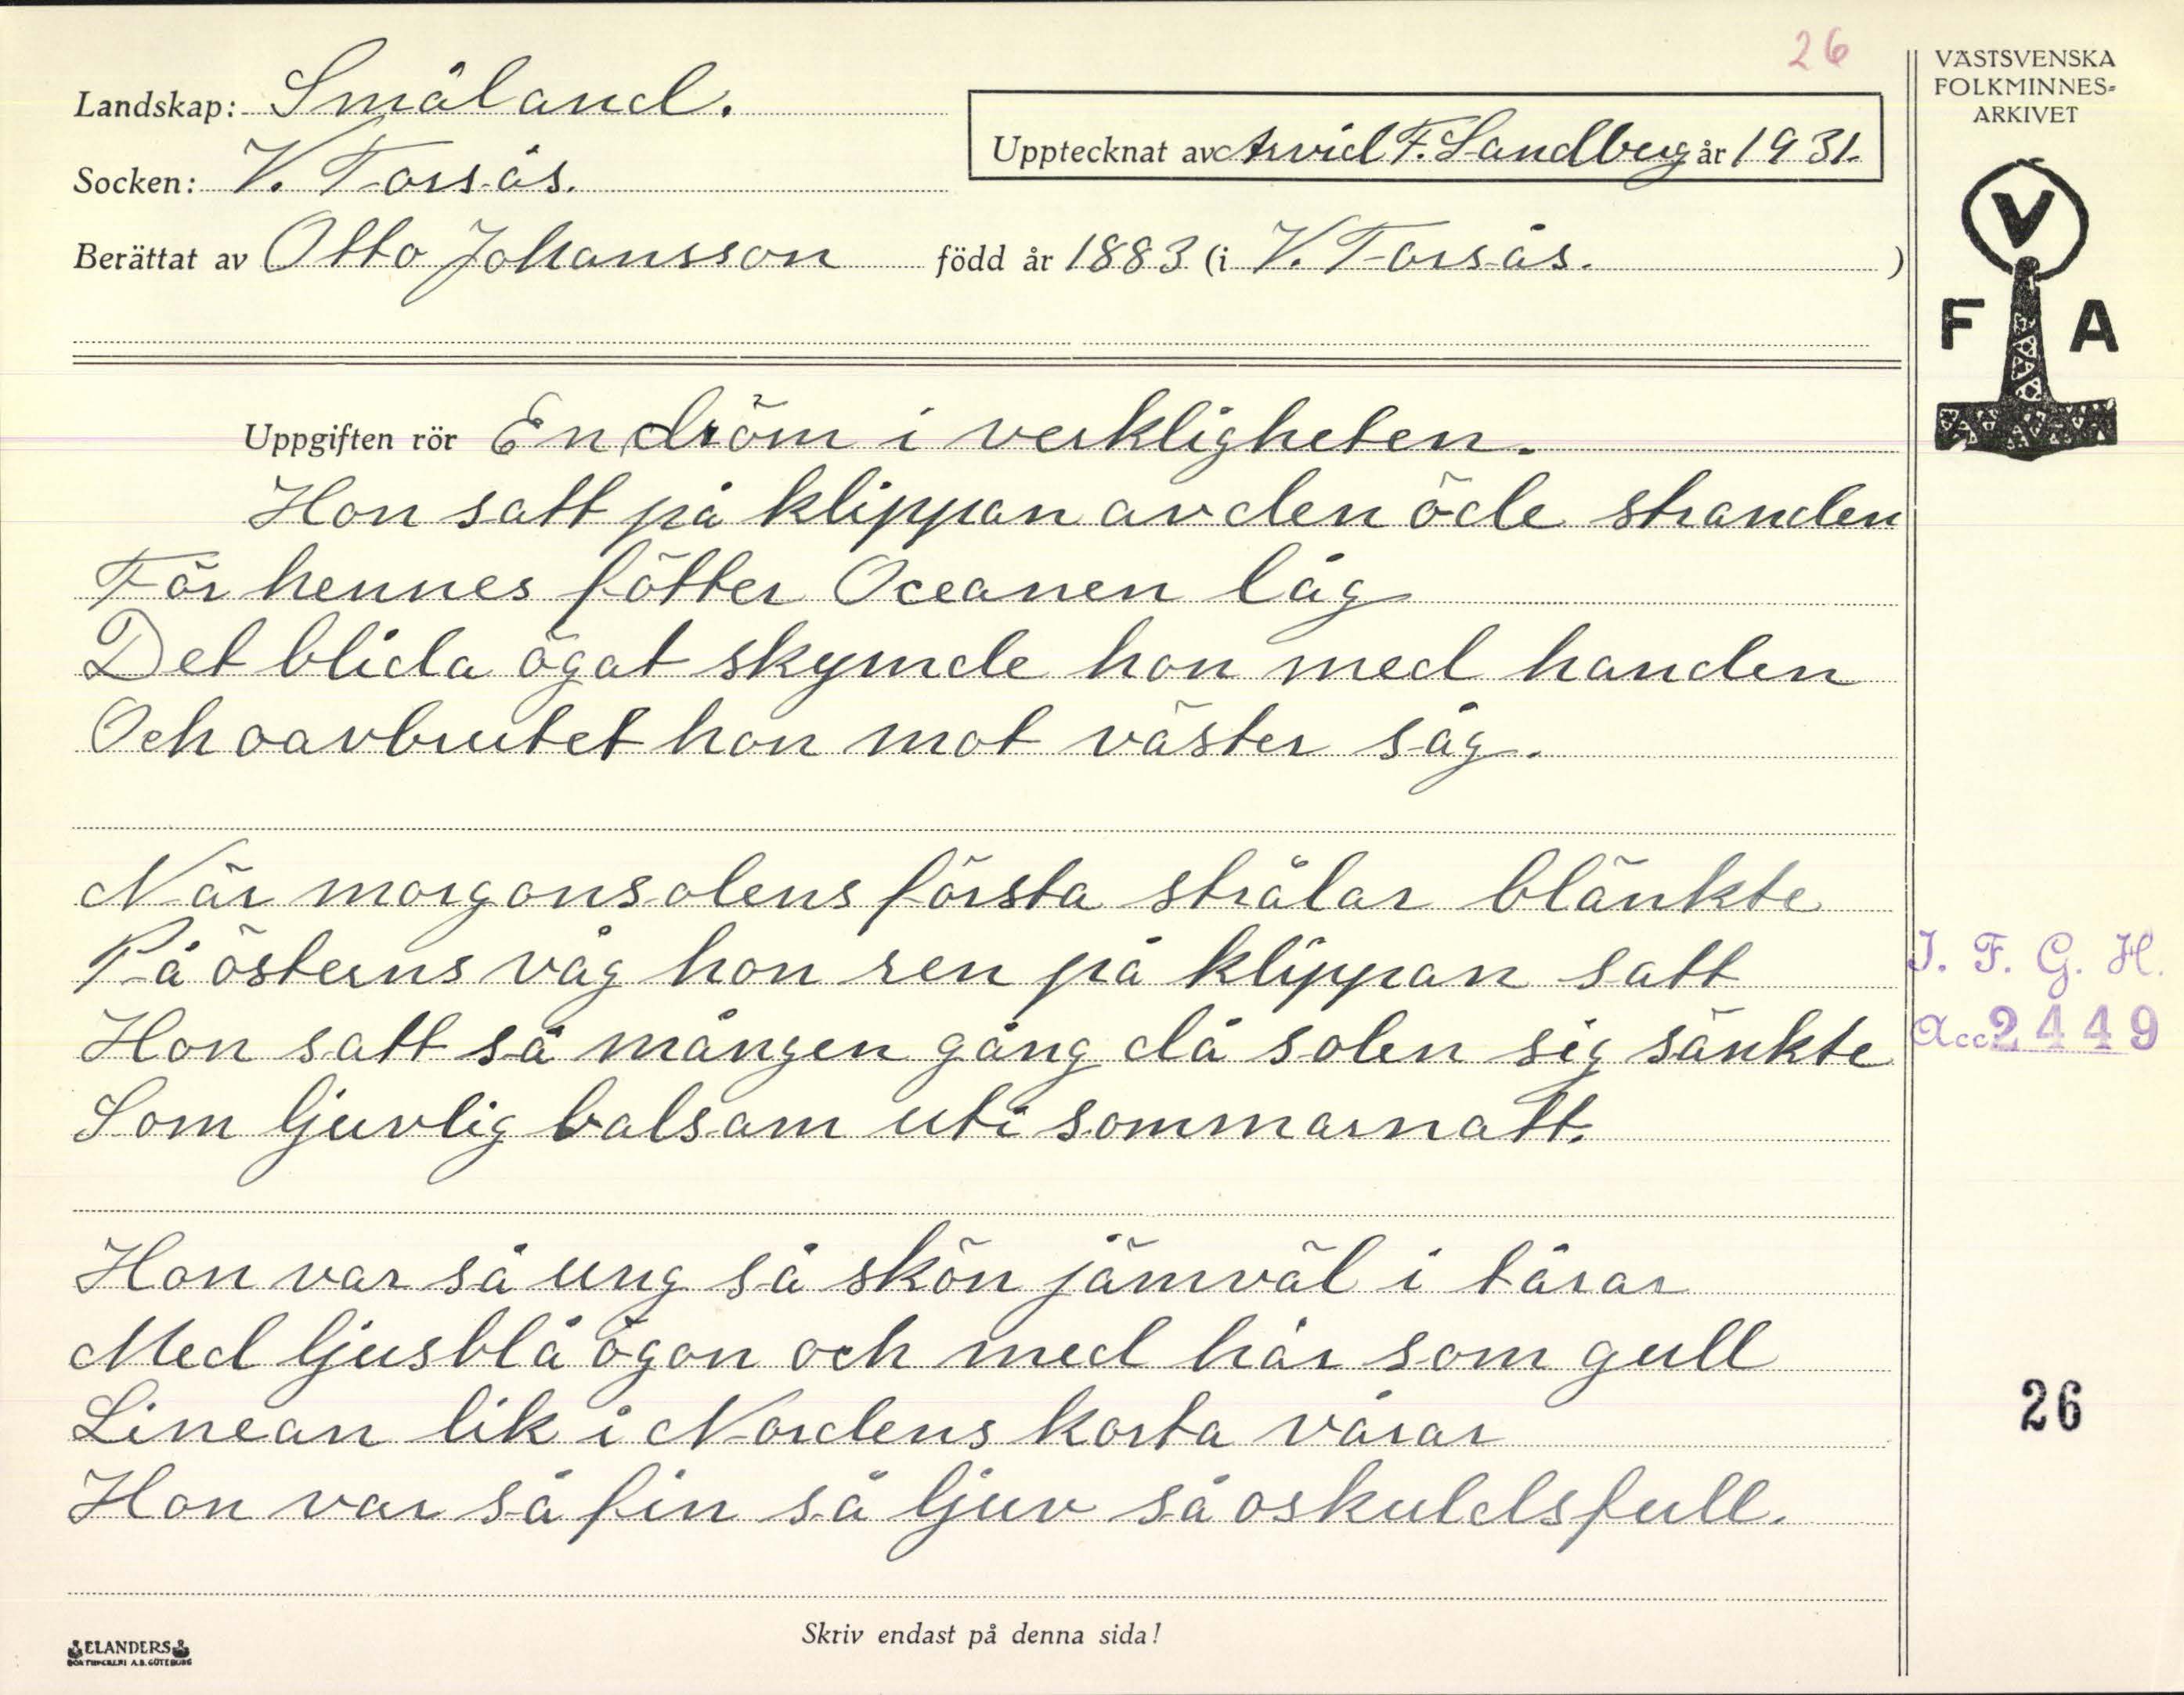 26
Landskap: Småland.
Socken: V. Torsås.
Upptecknat av Arvid F. Sandberg år 1931.
Berättat av Otto Johansson född år 1883 (i V. Torsås. )
VÄSTSVENSKA
FOLKMINNES-
ARKIVET
V
F A
Uppgiften rör En dröm i verkligheten.
Hon satt på klippan av den öde stranden
För hennes fötter Oceanen låg
Det blida ögat skymde hon med handen
Och oavbrutet hon mot väster såg.
När morgonsolens första strålar blänkte
På österns våg hon ren på klippan satt
Hon satt så mången gång då solen sig sänkte
Som ljuvlig balsam uti sommarnatt.
J. F. G. H.
Acc 2449
Hon var så ung så skön jämväl i tårar
Med ljusblå ögon och med hår som gull
Linean lik i Nordens korta vårar
Hon var så fin så ljuv så oskuldsfull.
26
Skriv endast på denna sida!
ELANDERS
BOKTRYCKERI A.B. GÖTEBORG